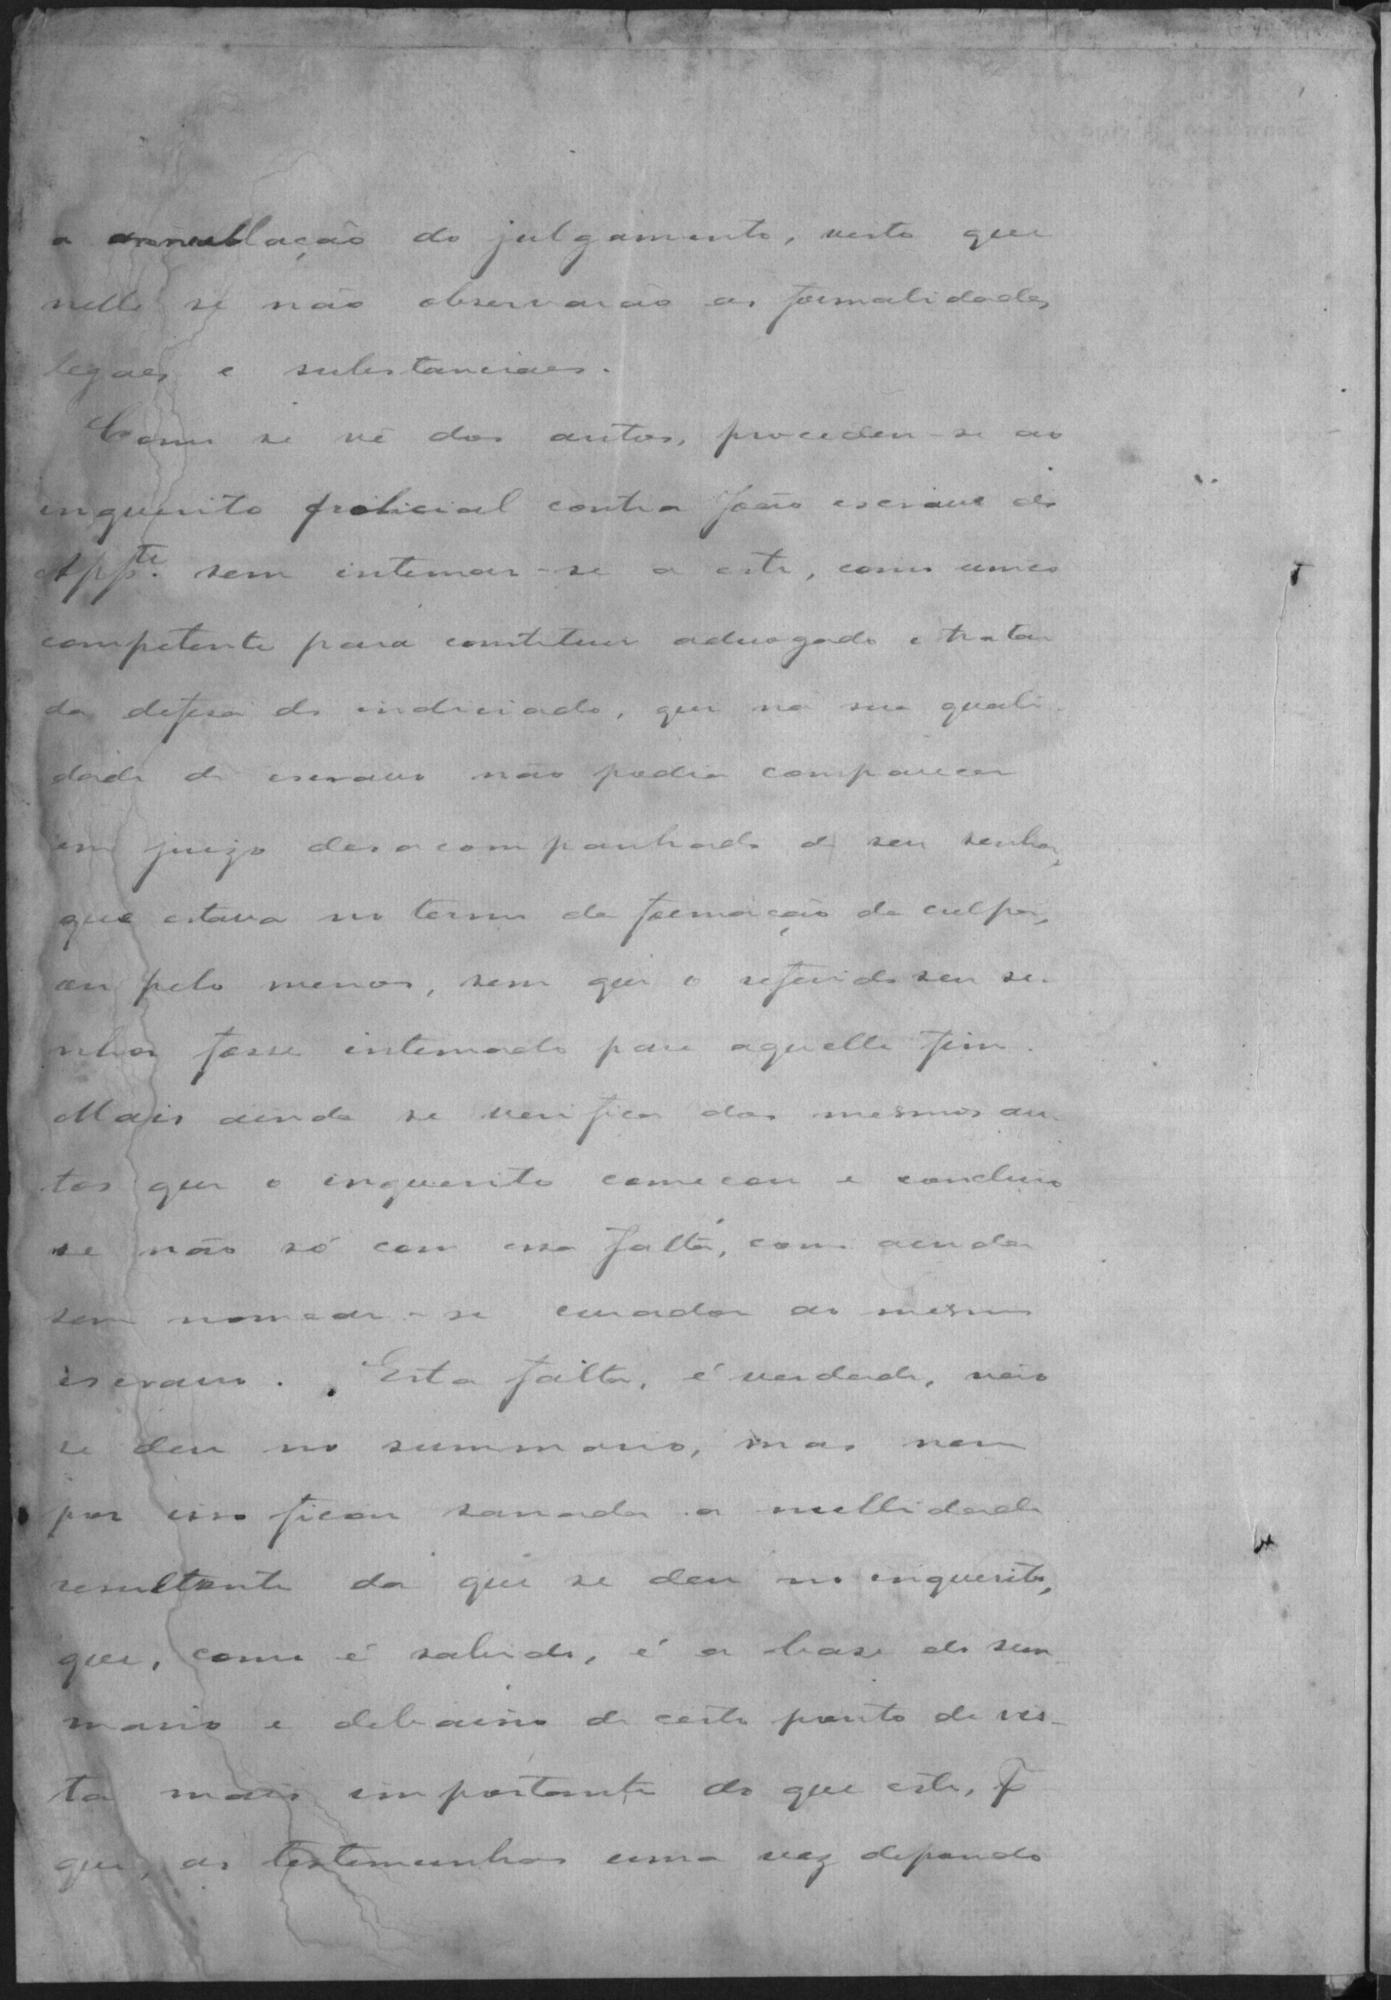 a annullação do julgamento, visto que
nelle se não observarão as formalidades
legaes e substanciaes.
Como se vê dos autos, procedeu-se ao
inquerito policial contra João escravo do
Appte. sem intimar-se a este, como unico
competente para constituir advogado e tratar
da defesa do indiciado, que na sua quali-
dade de escravo não podia comparecer
em juizo desacompanhado de seu senhor,
que estava no termo da formação da culpa,
ou pelo menos, sem que o referido seu se-
nhor fosse intimado para aquelle fim.
Mais ainda se verifica dos mesmos au-
tos que o inquerito começou e concluio
se não só com essa falta, como ainda
sem nomear-se curador ao mesmo
escravo. Esta falta, é verdade, não
se deu no summario, mas nem
por isso ficou sanada a nullidade
resultante da que se deu no inquerito,
que, como é sabido, é a base do sum-
mario e debaixo de certo ponto de vis-
ta mais importante do que este, p
que, as testemunhas uma vez depondo